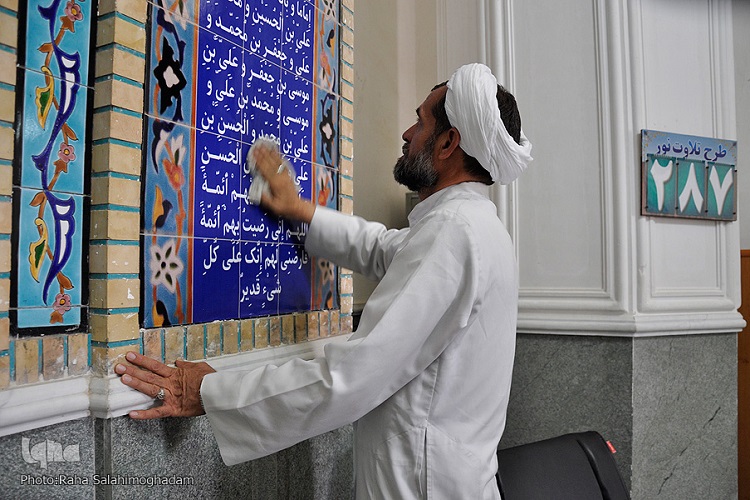 إماماً و
علي بن الحسين و
علي و جعفر بن
موسى بن جعفر و علي بن
موسى و محمّد بن علي و
علي بن محمّد و الحسن بن
علي بن الحسن
أئمّة
اللهم إني رضيت بهم أئمّة
فارضني لهم إنك على كلّ
شيءٍ قدير
طرح تلاوت نور
۲۸۷
iqna
Photo:Raha Salahimoghadam